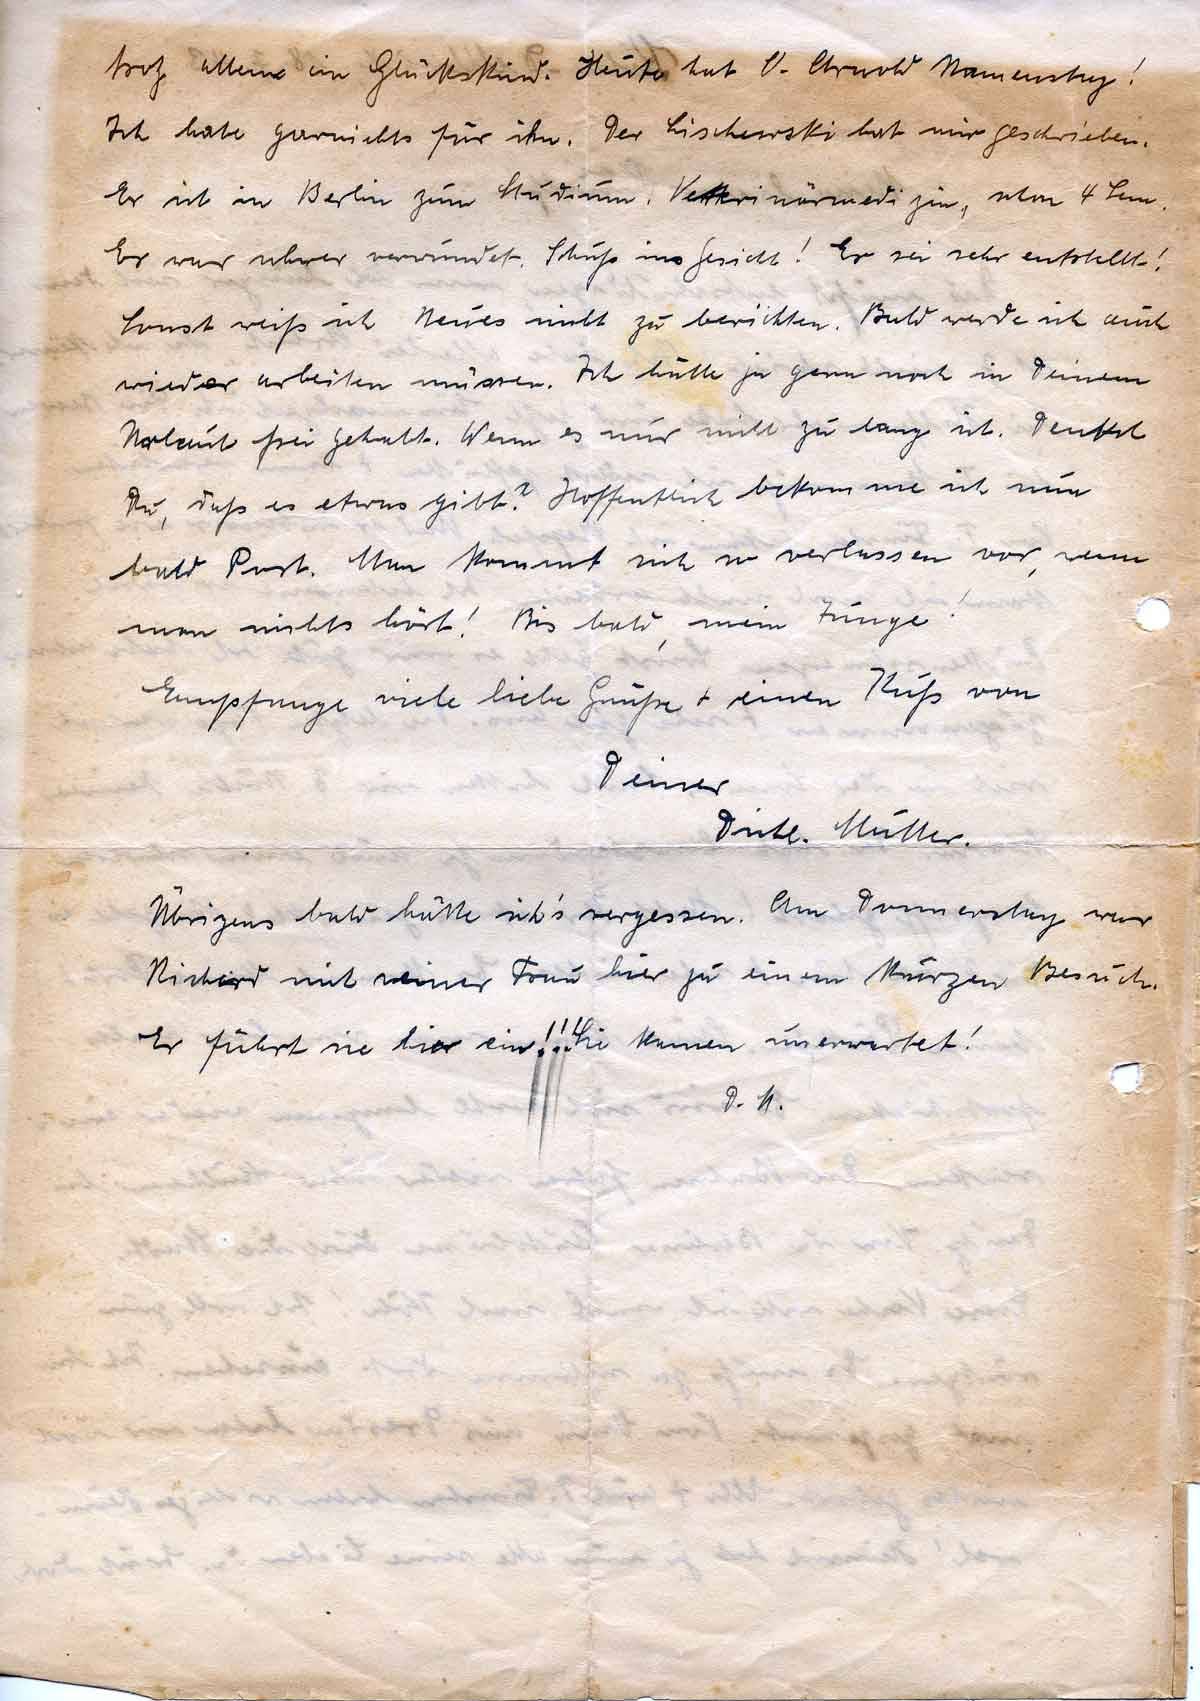 trotz allem ein Glückskind. Heute hat V. Arnold Namenstag!
Ich habe garnichts für ihn. Der Lischewski hat mir geschrieben.
Er ist in Berlin zum Studium. Veterinärmedizin, schon 4 Sem.
Er war schwer verwundet. Schuß ins Gesicht! Er sei sehr entstellt!
Sonst weiß ich Neues nicht zu berichten. Bald werde ich auch
wieder arbeiten müssen. Ich hätte ja gern noch in Deinem
Urlaub frei gehabt. Wenn es nur nicht zu lang ist. Denkst
Du, daß es etwas gibt? Hoffentlich bekomme ich nun
bald Post. Man kommt sich so verlassen vor, wenn
man nichts hört! Bis bald, mein Junge!
Empfange viele liebe Grüße + einen Kuß von
Deiner
Dichl. Mutter.
Übrigens bald hätte ich's vergessen. Am Donnerstag war
Richard mit seiner Frau hier zu einem kurzen Besuch.
Er führt sie hier ein!!! Sie kamen unerwartet!
D. M.